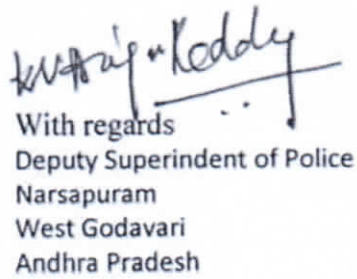 Reddy
With regards
Deputy Superindent of Police
Narsapuram
West Godavari
Andhra Pradesh